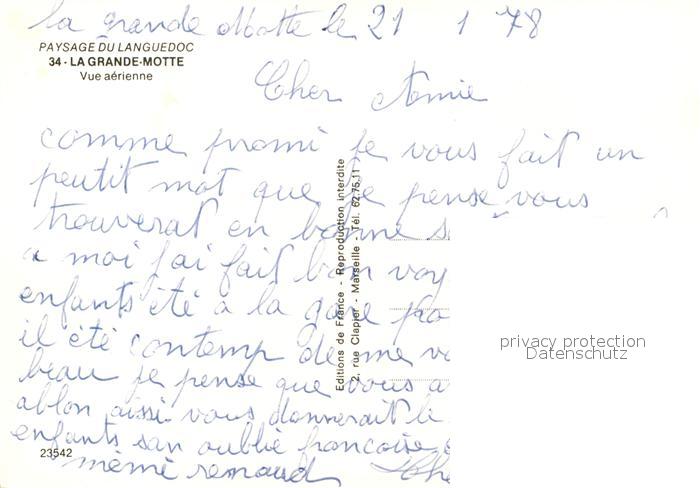 la grande Motte le 21 1 78
PAYSAGE DU LANGUEDOC
34 - LA GRANDE-MOTTE
Vue aérienne
Cher Amie
comme promi je vous fait un
peutit mot que je pense vous
trouverat en bonne s
a moi j'ai fait bon voy
enfants été à la gare
il été contemp de me
beau je pense que vous a
ablon aissi vous donnerait le
enfants san oublié francoise
mémé renaud
23542
Editions de France - Reproduction interdite
2, rue Clapier - Marseille - Tél. 62.75.11
privacy protection
Datenschutz